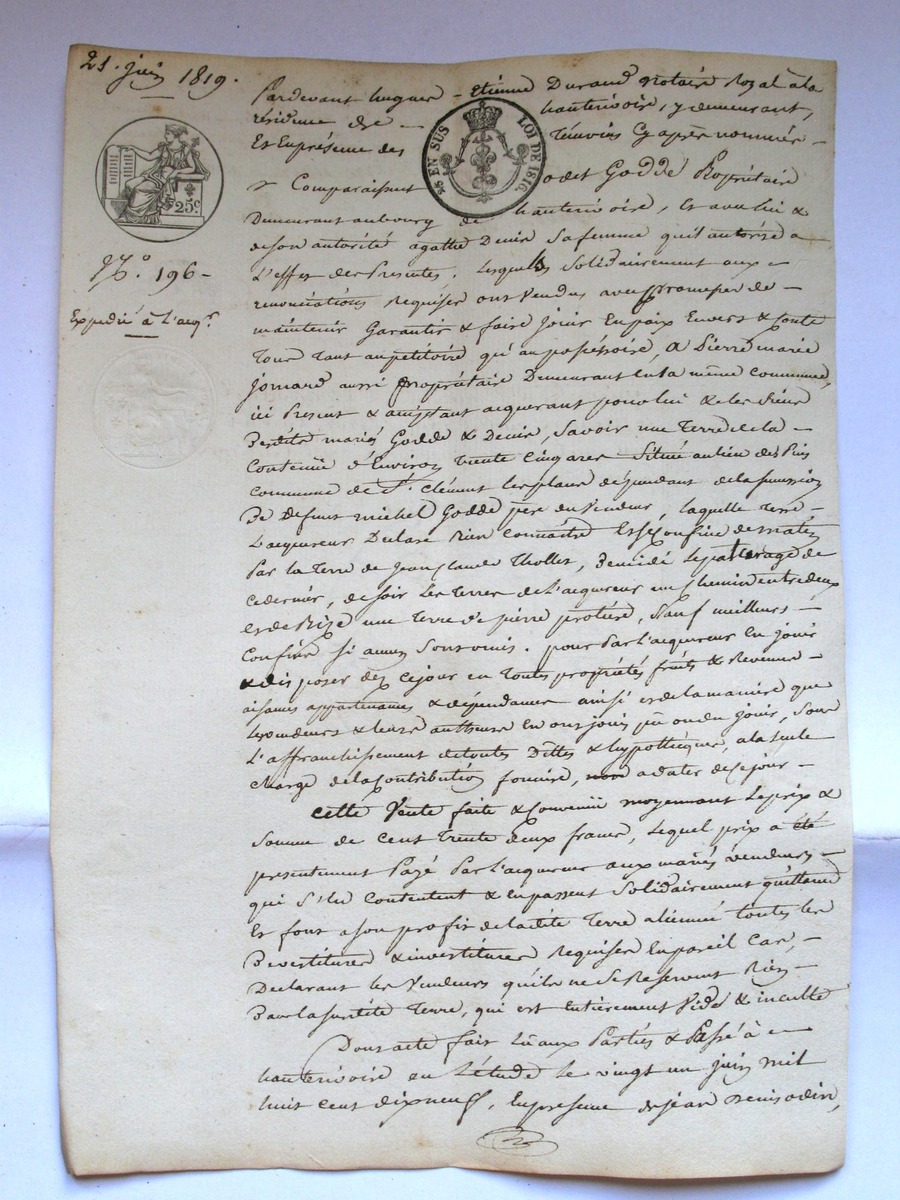 21. juin 1819.
Pardevant hugues - Etienne Durand notaire Royal à la
résidence de - hauterivoire, y demeurant,
Et En présence des témoins Cy après nommés -
25ᶜ EN SUS LOI DE 1816
25ᶜ
Comparaissent odet Goddé Propriétaire
Demeurant au bourg de hauterivoire, Et avec lui &
de son autorité agathe Denis sa femme qu'il autorise a
L'effet des Presentes. Lesquels solidairement aux
renonciations Requises ont Vendus avec promesses de -
N.º 196 -
maintenir Garantir & faire Jouir En paix Envers & Contre
Expedié à L'acqʳ.
Tous tant au petitoire qu'au poséssoire, A Pierre marie
jomard aussi propriétaire Demeurant En la même Commune,
ici Present & acceptant acquerant pour lui & les siens
Desdits mariés Goddé & Denis, savoir une Terre de la -
Contenüe d'Environ trente Cinq ares Situé au lieu des Pins
Commune de Sᵗ. Clément les places dépendant de la succession
De Defunt michel Goddé père du Vendeur, laquelle terre -
L'acquereur Declare bien Connaître Et se Confine de matin
Par la Terre de Jean Claude Thollet, De midi Le paturage de
ce dernier, de soir Les terres de L'acquereur un chemin entre deux
et de Bize une terre de pierre protière, Sauf meilleurs -
Confins si aucuns sont omis. pour Par L'acquereur En jouir
& disposer dez ce jour en toutes propriétés fruits & Revenus -
aisances appartenances & dépendances ainsi et de la maniere que
les vendeurs & leurs autheurs En ont jouis pû ou du jouir, Sous
L'affranchissement de toutes Dettes & hypotheques, a la seule
charge de la Contribution fonciere, a dater de ce jour -
Cette Vente faite & Convenüe moyennant Le prix &
Somme de Cent trente deux francs, Lequel prix a été
presentement Payé Par L'acquereur aux mariés vendeurs -
qui s'en Contentent & en passent Solidairement quittance
Et font a son profit de la dite Terre aliennée toutes les
Devestitures & investitures Requises En pareil Cas, -
Declarant les Vendeurs qu'ils ne se Réservent Rien -
Dans la susdite Terre, qui est Entièrement Vide & inculte
Dont acte fait Lû aux Parties & Passé à -
hauterivoire en L'étude Le vingt un juin mil
huit cent dix neuf, En présence de jean Denis odin,